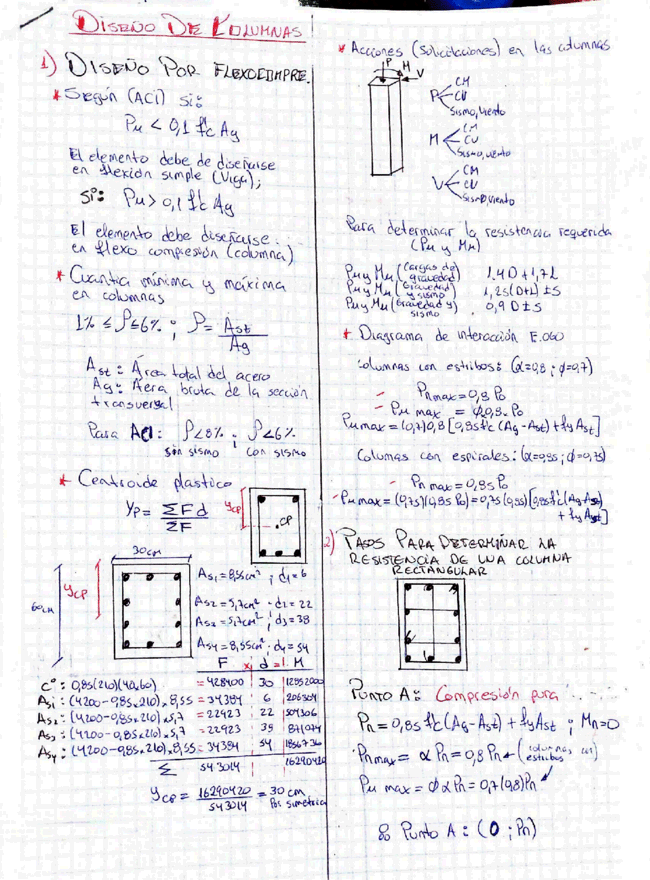 DISEÑO DE COLUMNAS
1) DISEÑO POR FLEXOCOMPRE.
* Según (ACI) si:
Pu < 0,1 f'c Ag
El elemento debe de diseñarse
en flexión simple (Viga);
si: Pu > 0,1 f'c Ag
El elemento debe diseñarse
en flexo compresión (columna)
* Cuantía mínima y máxima
en columnas
1% ≤ ρ ≤ 6% ; ρ = Ast
Ag
Ast: Área total del acero
Ag: Área bruta de la sección
transversal
Para ACI: ρ<8% ; ρ<6%
sin sismo con sismo
* Centroide plastico
Yp = ΣFd
ΣF
YCP
CP
30cm
60cm
YCP
As1 = 8,55cm² ; d1 = 6
As2 = 5,7cm² - d2 = 22
As3 = 5,7cm² ; d3 = 38
As4 = 8,55cm² - d4 = 54
F x d = M
C°: 0,85(210)(40x60) = 428400 30 12852000
As1: (4200-0,85x210)x8,55 = 34394 6 206364
As2: (4200-0,85x210)x5,7 = 22923 22 504306
As3: (4200-0,85x210)x5,7 = 22923 38 871074
As4: (4200-0,85x210)x8,55 = 34394 54 1856736
Σ 543014 16290420
YCP = 16290420 = 30 cm
543014 Por simetria
* Acciones (solicitaciones) en las columnas
P M
V
P CM
CV
Sismo, viento
M CM
CV
Sismo, viento
V CM
CV
Sismo, viento
Para determinar la resistencia requerida
(Pu y Mu)
Pu y Mu (Cargas de gravedad) 1.4D+1,7L
Pu y Mu (Gravedad y sismo) 1,25(D+L) ± S
Pu y Mu (Gravedad y) sismo 0,9D ± S
* Diagrama de interacción E.060
Columnas con estribos: (α=0,8 ; φ=0,7)
- Pn max = 0,8 Po
- Pu max = φ0,8.Po
Pu max = (0,7)0,8 [0,85f'c (Ag-Ast) + fy Ast]
Columnas con espirales: (α=0,85 ; φ=0,75)
- Pn max = 0,85 Po
- Pu max = (0,75)(0,85 Po) = 0,75(0,85)[0,85f'c(Ag-Ast)
+ fy Ast]
2) PASOS PARA DETERMINAR LA
RESISTENCIA DE UNA COLUMNA
RECTANGULAR
Punto A: Compresión pura
Pn = 0,85 f'c (Ag-Ast) + fy Ast ; Mn=0
Pn max = α Pn = 0,8 Pn (columnas con estribos)
Pu max = φ α Pn = 0,7(0,8)Pn
∴ Punto A: (0 ; Pn)